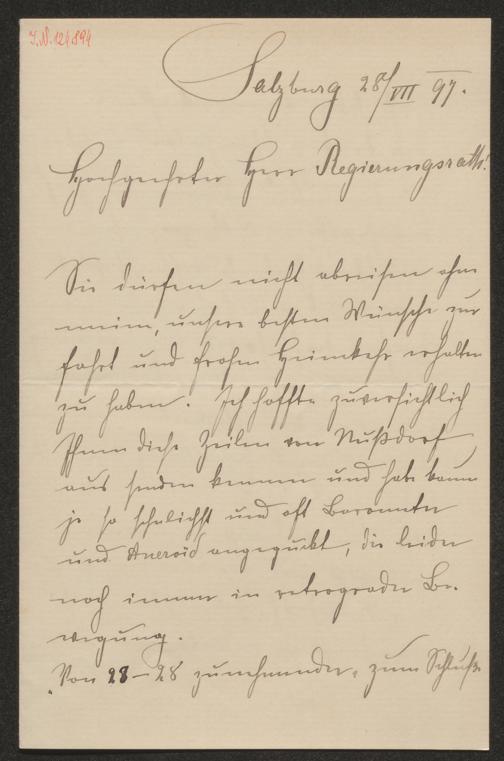 I.N. 124.894
Salzburg 28/VII 97.
Hochgeehrter Herr Regierungsrath!
Sie dürfen nicht abreisen ohne
meine, unsere besten Wünsche zur
Fahrt und frohen Heimkehr erhalten
zu haben. Ich hoffte zuversichtlich
Ihnen diese Zeilen von Nußdorf
aus senden können und habe kaum
je so sehnlichst und oft Barometer
und Aneroid angeguckt, die leider
noch immer in retrograder Be-
wegung.
"Von 23–28 zunehmender, zum Schluße